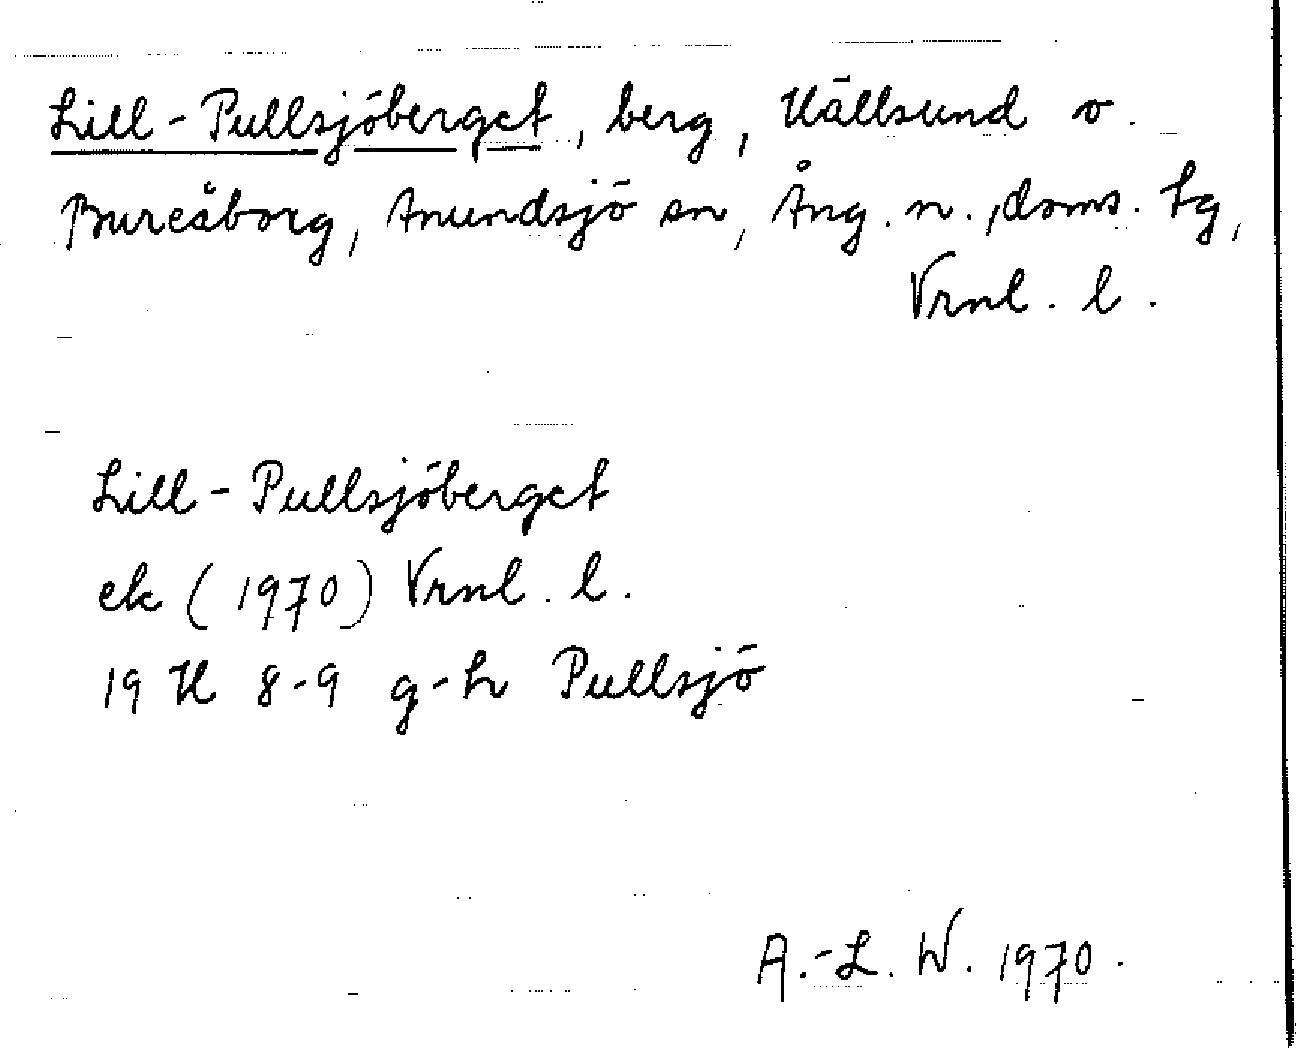 Lill-Pullsjöberget, berg, Hällsund o.
Bureåborg, Anundsjö sn, Ång. n., doms. tg,
Vrnl. l.
Lill-Pullsjöberget
ek (1970) Vrnl. l.
19 H 8-9 g-h Pullsjö
A.-L. W. 1970.